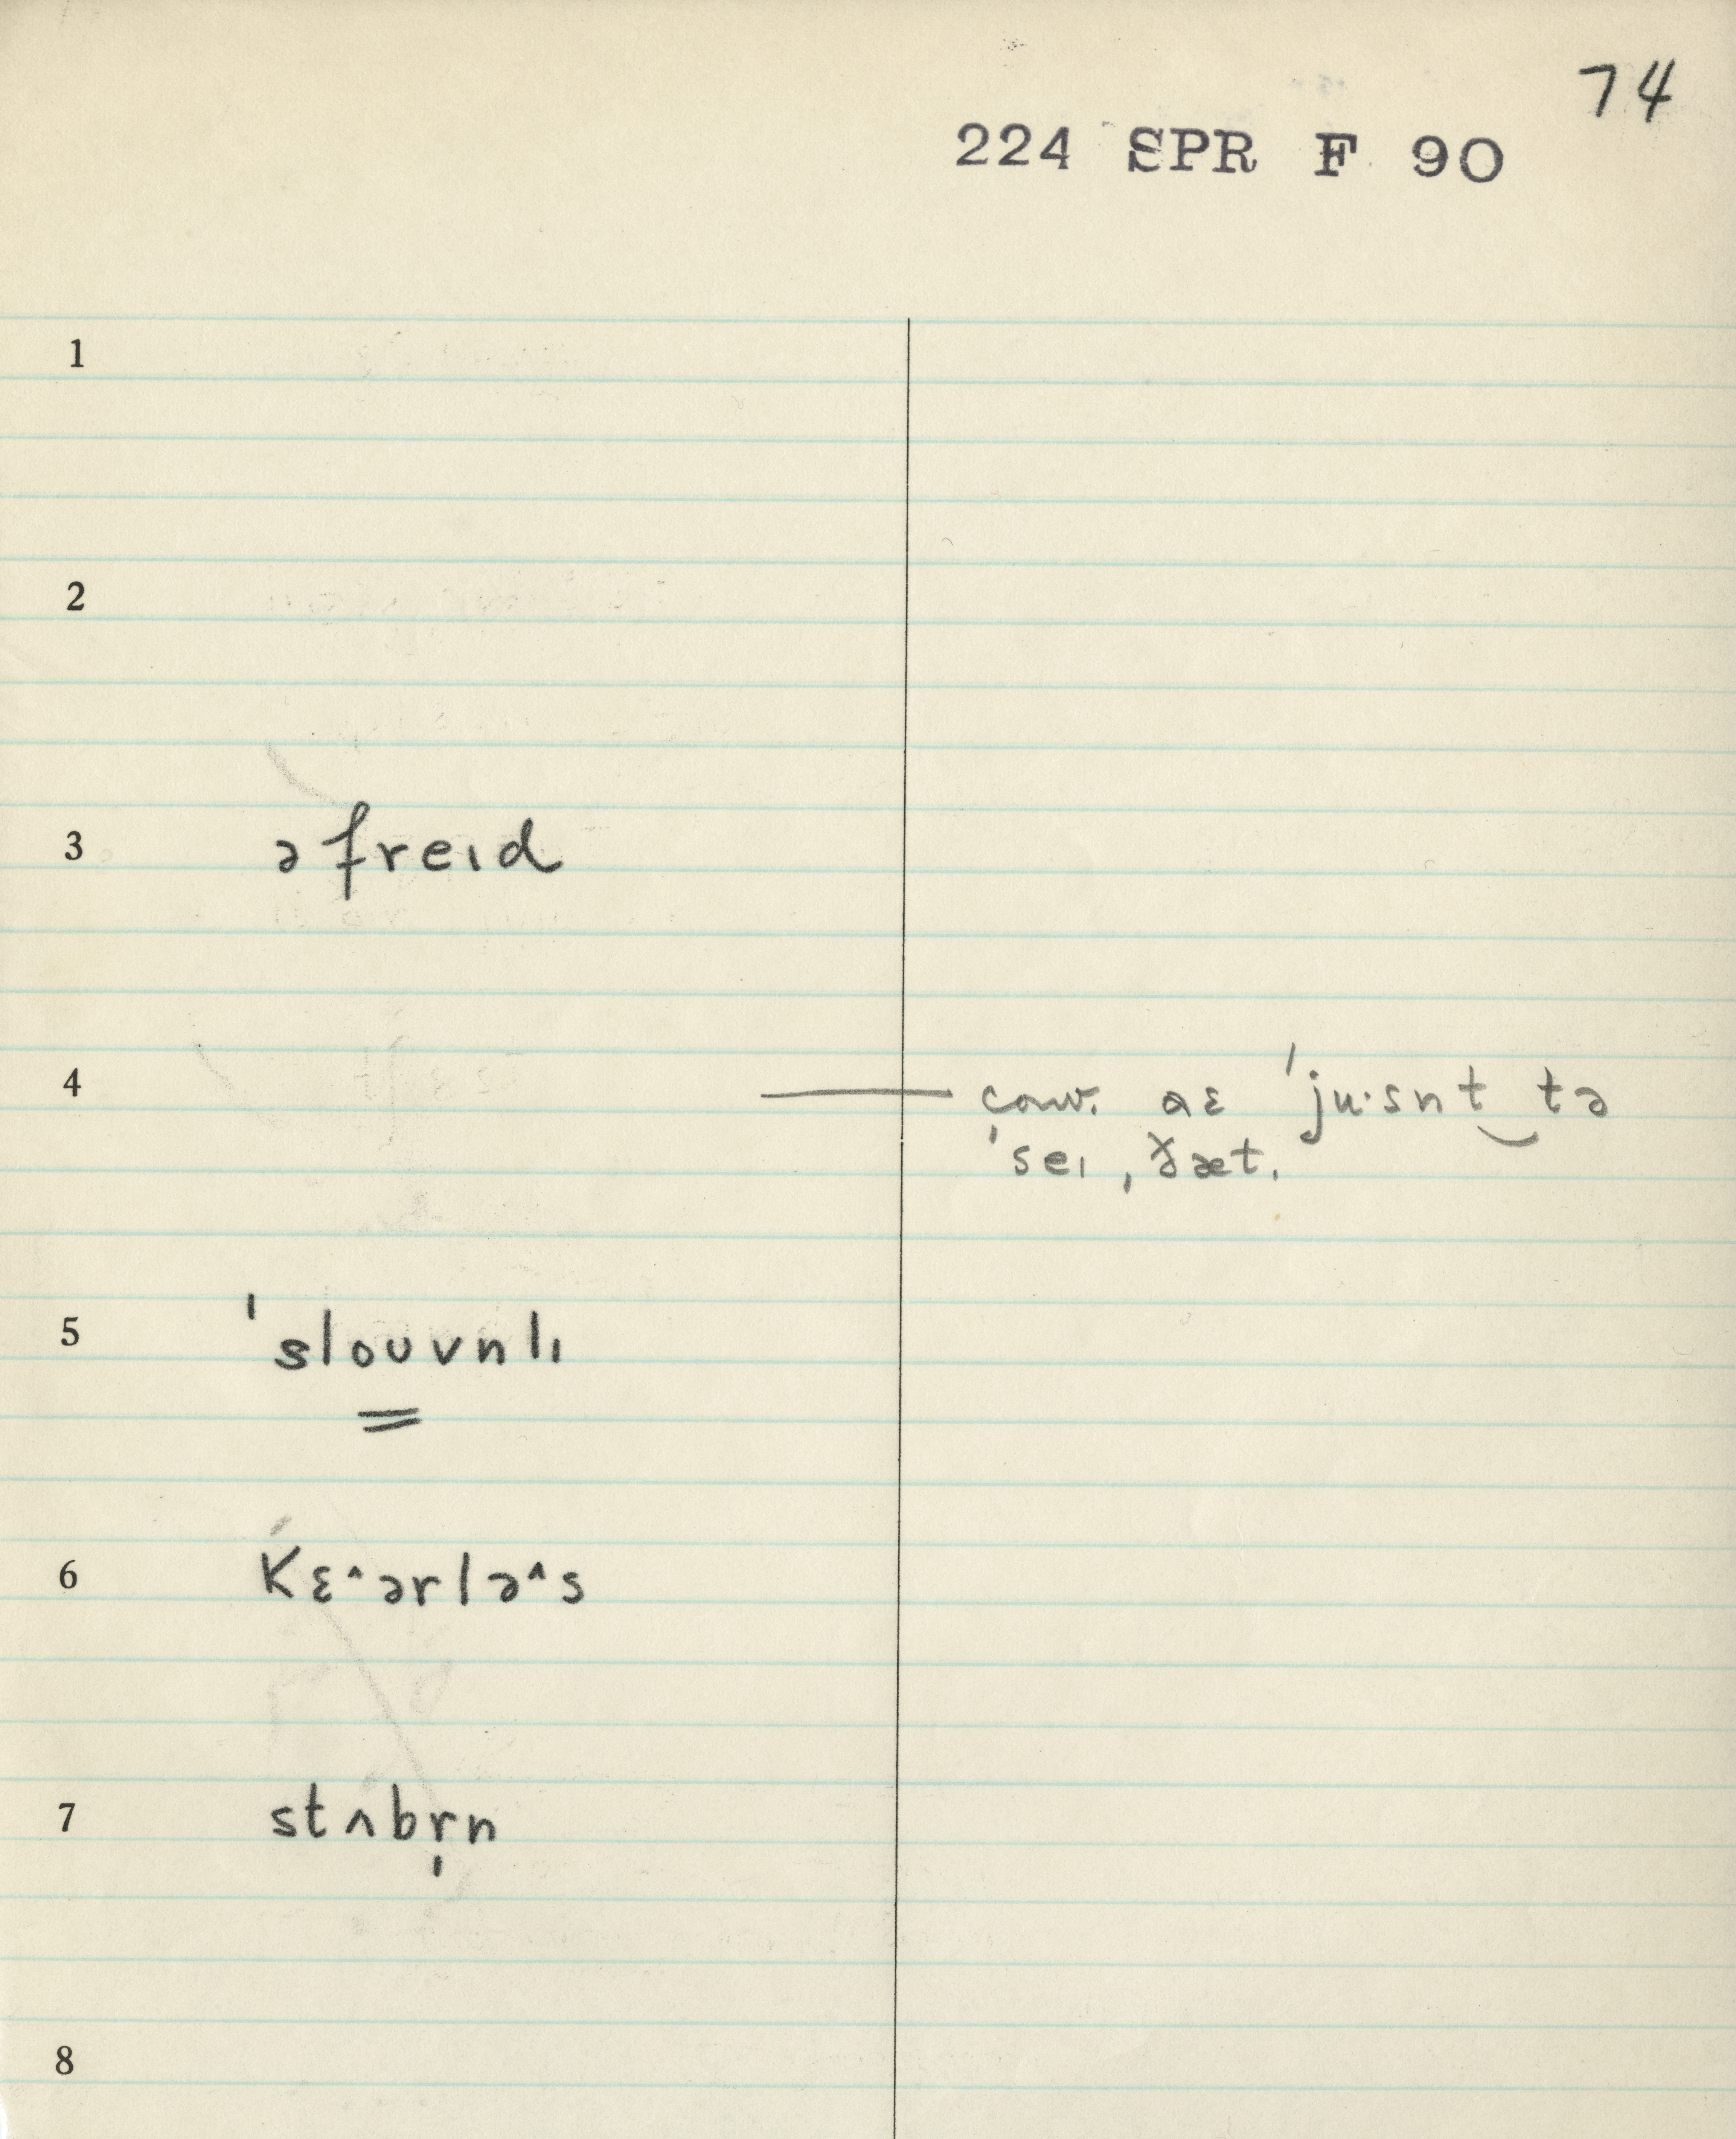 74
224 SPR F 90
1
2
3 əfreɪd
4 conv. ɑɛ ˈju·snt‿tə
ˈseɪ ˌðæt.
5 ˈsloʊvnlɪ
6 kɛ^ərlə^s
7 stʌbr̩n
8